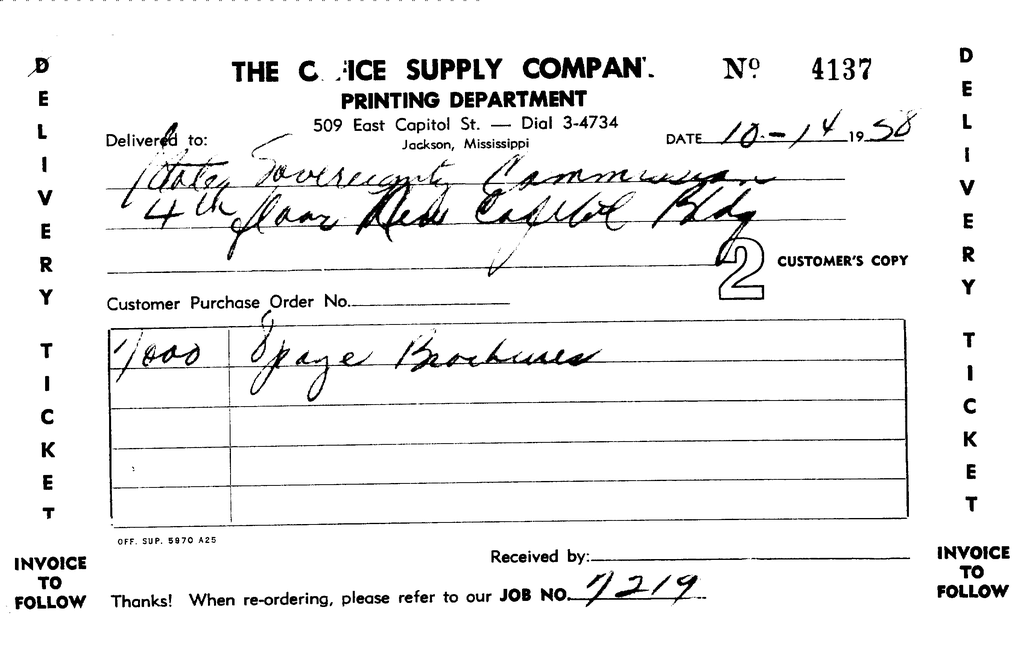 THE OFFICE SUPPLY COMPANY
Nº 4137
PRINTING DEPARTMENT
509 East Capitol St. — Dial 3-4734
Jackson, Mississippi
Delivered to:
DATE 10-14 1958
State Sovereignty Commission
4th floor New Capitol Bldg
2 CUSTOMER'S COPY
Customer Purchase Order No.
7000 8 page Brochures
OFF. SUP. 5970 A25
Received by:
Thanks! When re-ordering, please refer to our JOB NO. 7219
DELIVERY TICKET
INVOICE
TO
FOLLOW
DELIVERY TICKET
INVOICE
TO
FOLLOW